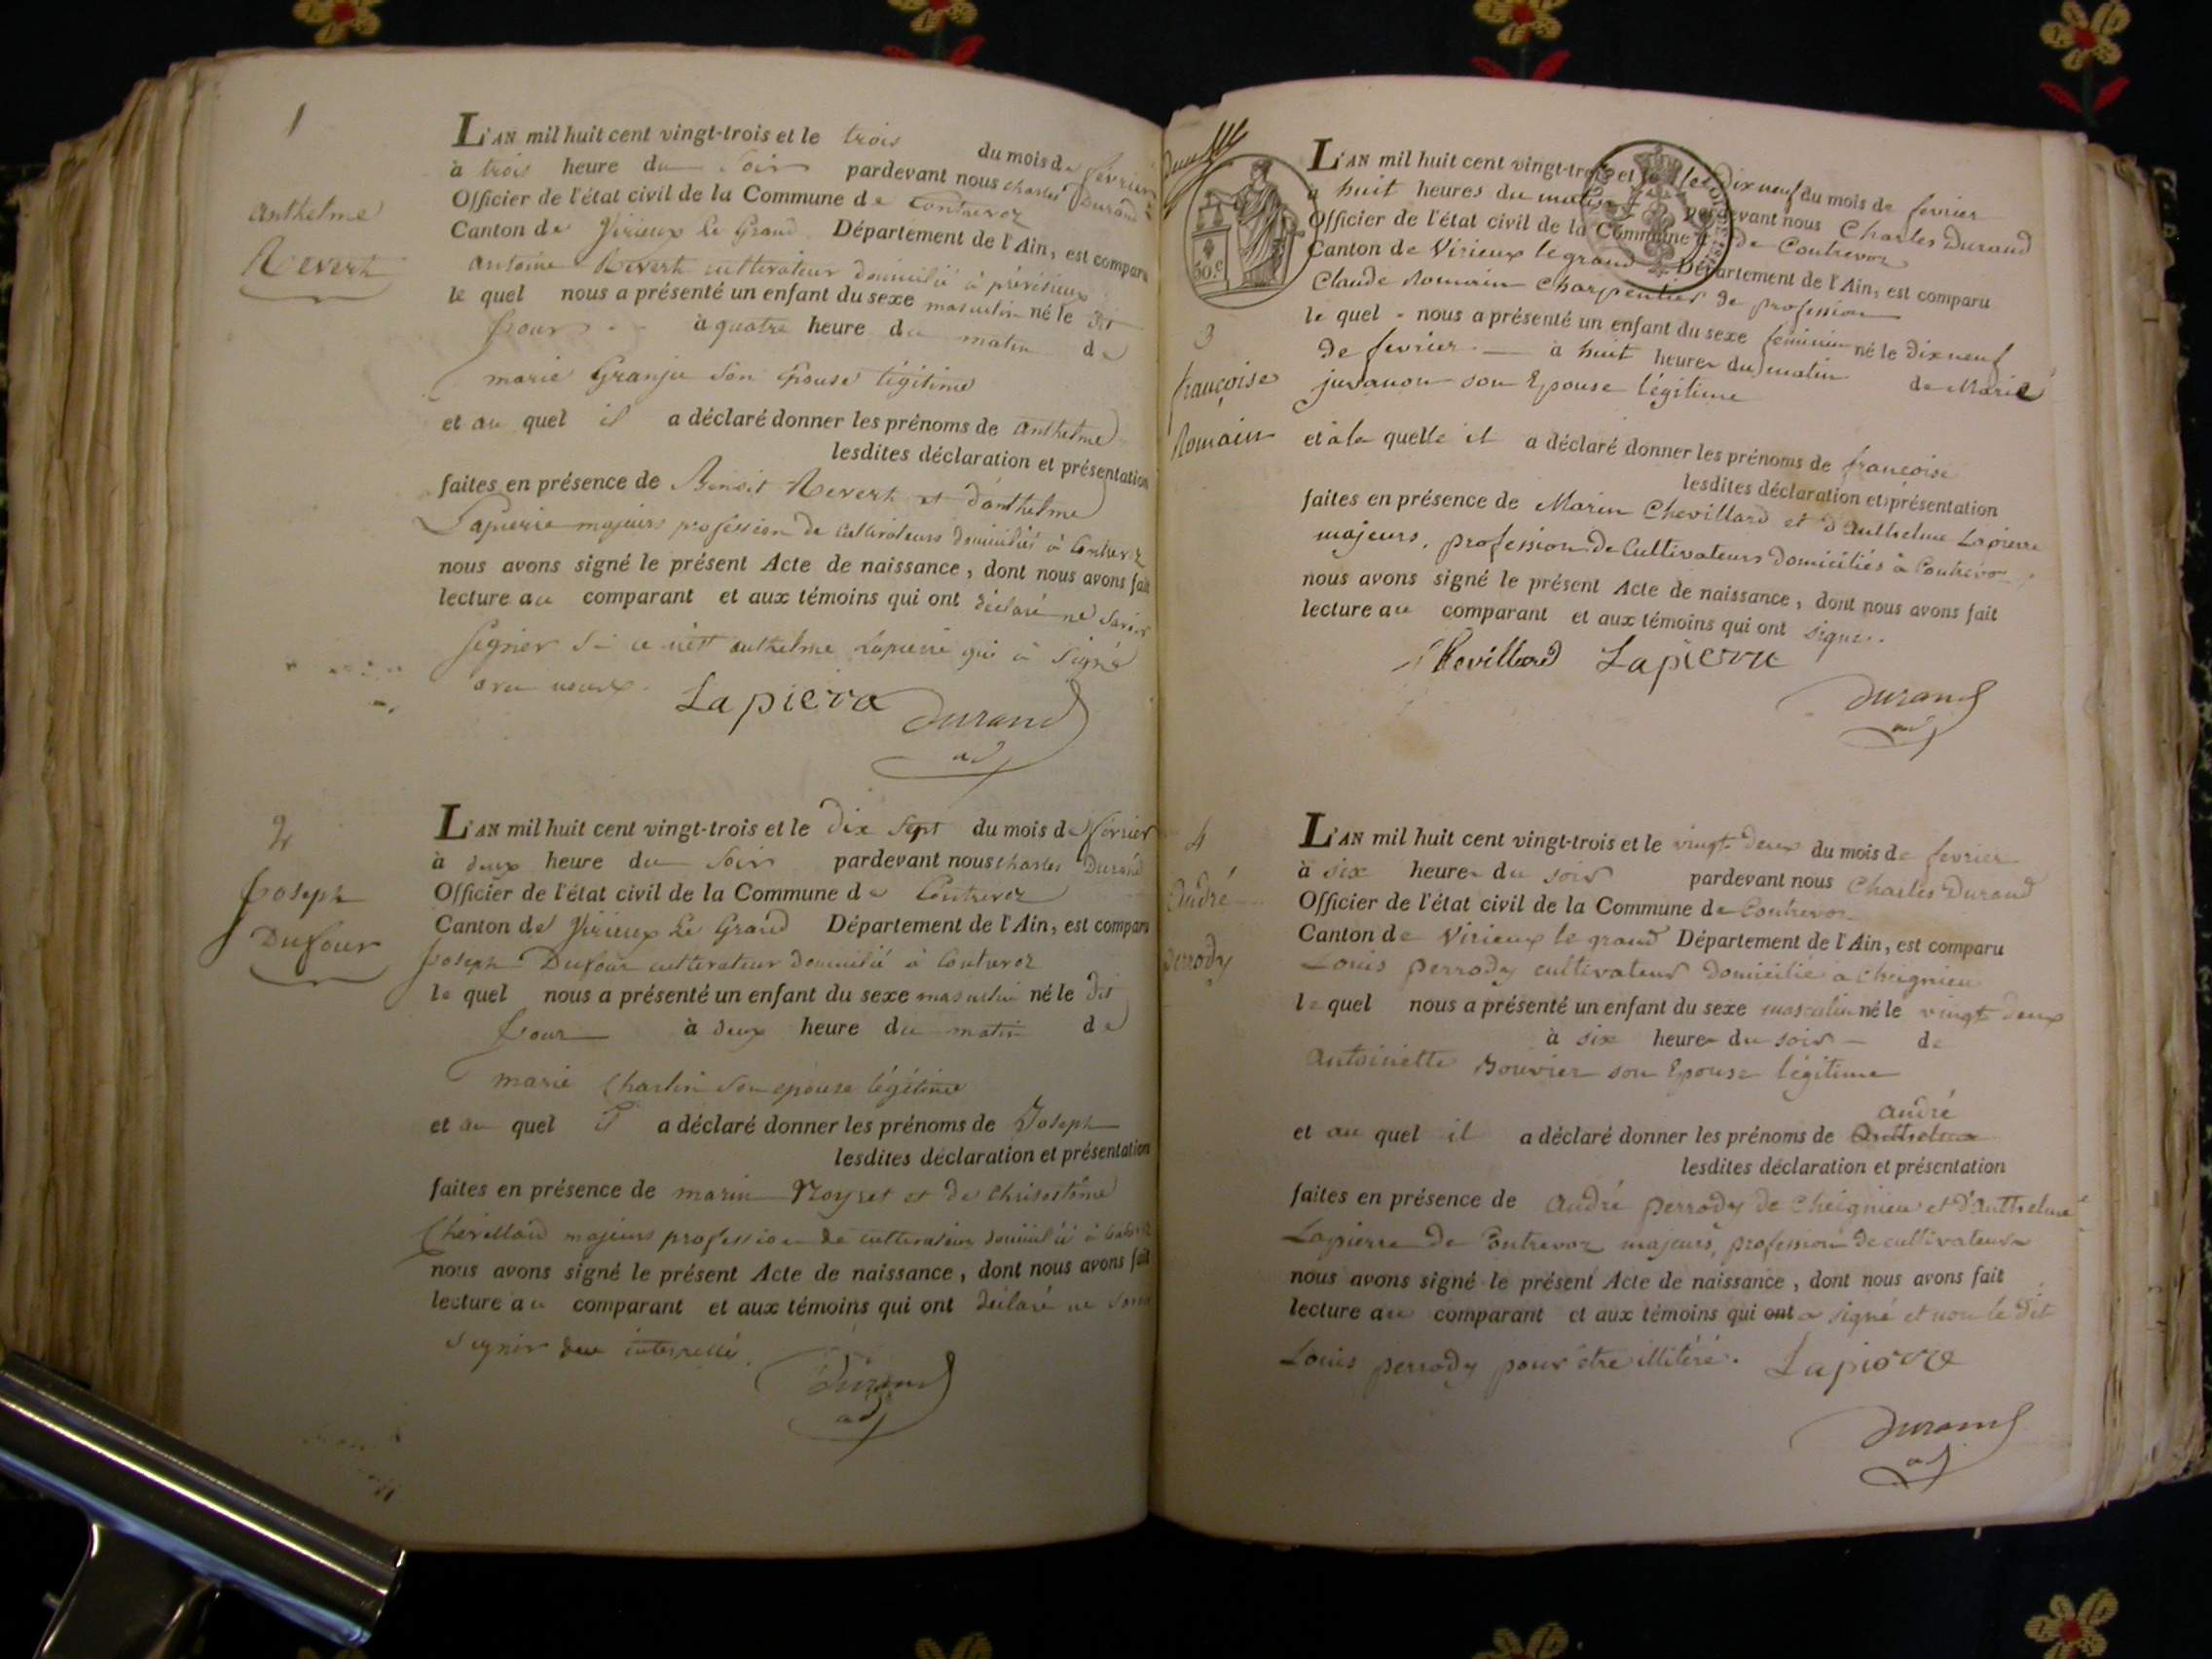 1
Anthelme
Revert
L'AN mil huit cent vingt-trois et le trois du mois de février
à trois heure du Soir pardevant nous charles Durand
Officier de l'état civil de la Commune de Contrevoz
Canton de Virieux Le Grand Département de l'Ain, est comparu
antoine Revert cultivateur domicilié à
le quel nous a présenté un enfant du sexe masculin né le dit
Jour à quatre heure du matin de
marie Granju Son Epouse légitime
et au quel il a déclaré donner les prénoms de anthelme
lesdites déclaration et présentation
faites en présence de Benoit Revert et d'anthelme
Lapierre majeurs profession de cultivateurs domiciliés à Contrevoz
nous avons signé le présent Acte de naissance, dont nous avons fait
lecture au comparant et aux témoins qui ont déclaré ne Savoir
Signer Si ce n'est anthelme Lapierre qui a Signé
Lapiere Durand
ad
2
Joseph
Dufour
L'AN mil huit cent vingt-trois et le dix Sept du mois de février
à deux heure du Soir pardevant nous charles Durand
Officier de l'état civil de la Commune de Contrevoz
Canton de Virieux Le Grand Département de l'Ain, est comparu
Joseph Dufour cultivateur domicilié à Contrevoz
le quel nous a présenté un enfant du sexe masculin né le dit
Jour à deux heure du matin de
marie Charlin Son epouse légitime
et au quel il a déclaré donner les prénoms de Joseph
lesdites déclaration et présentation
faites en présence de marin Noyret et de Chrisostôme
Chevillard majeurs profession de cultivateurs domicilié à
nous avons signé le présent Acte de naissance, dont nous avons fait
lecture au comparant et aux témoins qui ont déclaré ne
Signer interpellé
Durand
ad
50.c
3
françoise
Romain
L'AN mil huit cent vingt-trois et le dix neuf du mois de fevrier
à huit heures du matin pardevant nous Charles Durand
Officier de l'état civil de la Commune de Contrevoz
Canton de Virieux le grand Département de l'Ain, est comparu
Claude Romain Charpentier de profession
le quel nous a présenté un enfant du sexe feminin né le dix neuf
de fevrier à huit heures du matin de Marie
juvanon son Epouse légitime
et à la quelle il a déclaré donner les prénoms de françoise
lesdites déclaration et présentation
faites en présence de Marin Chevillard et d'Anthelme Lapierre
majeurs, profession de Cultivateurs domiciliés à Contrevoz
nous avons signé le présent Acte de naissance, dont nous avons fait
lecture au comparant et aux témoins qui ont signé.
Chevillard Lapierre
Durand
ad
4
André
perrody
L'AN mil huit cent vingt-trois et le vingt deux du mois de fevrier
à six heure du soir pardevant nous Charles Durand
Officier de l'état civil de la Commune de Contrevoz
Canton de Virieux le grand Département de l'Ain, est comparu
Louis perrody cultivateur domicilié à Cheignieu
le quel nous a présenté un enfant du sexe masculin né le vingt deux
à six heure du soir de
Antoinette Bouvier son Epouse légitime
André
et au quel il a déclaré donner les prénoms de Anthelme
lesdites déclaration et présentation
faites en présence de André perrody de Cheignieu et d'Anthelme
Lapierre de Contrevoz majeurs, profession de cultivateurs
nous avons signé le présent Acte de naissance, dont nous avons fait
lecture au comparant et aux témoins qui ont a signé et non le dit
Louis perrody pour être illitéré. Lapierre
Durand
ad